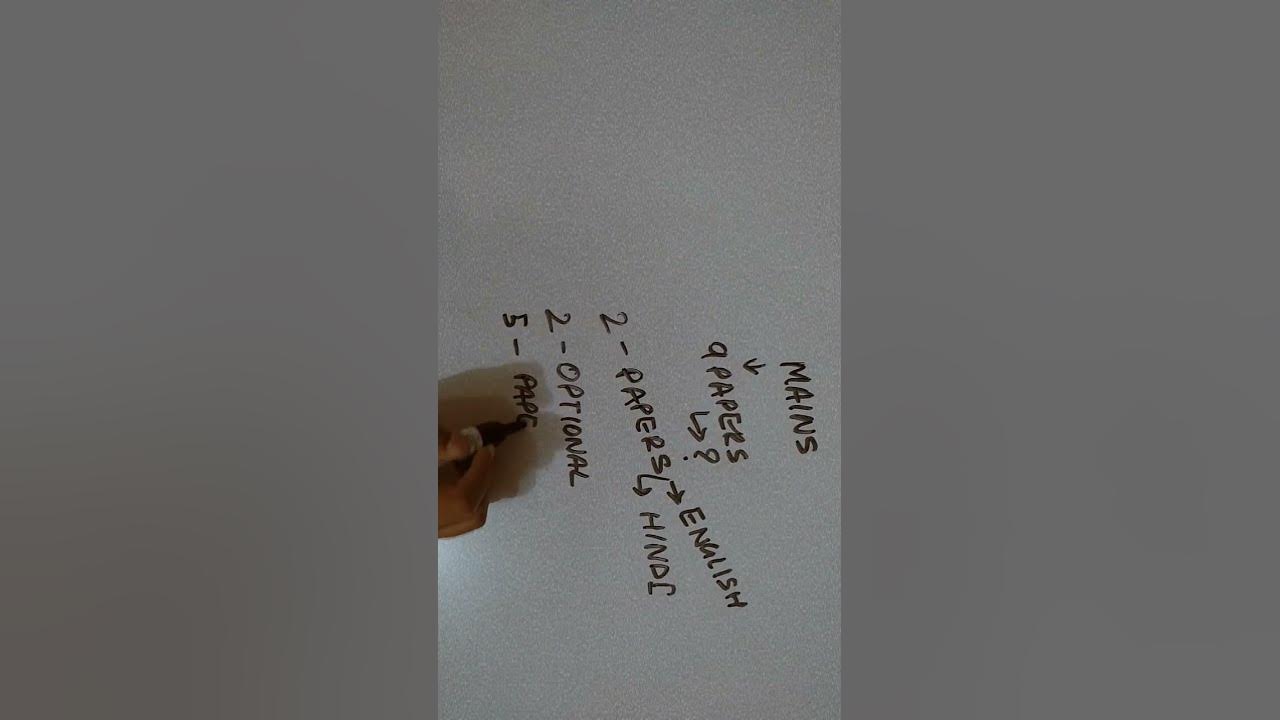 MAINS
↓
9 PAPERS
↳ ?
2 - PAPERS → ENGLISH
↳ HINDI
2 - OPTIONAL
5 - PAPE